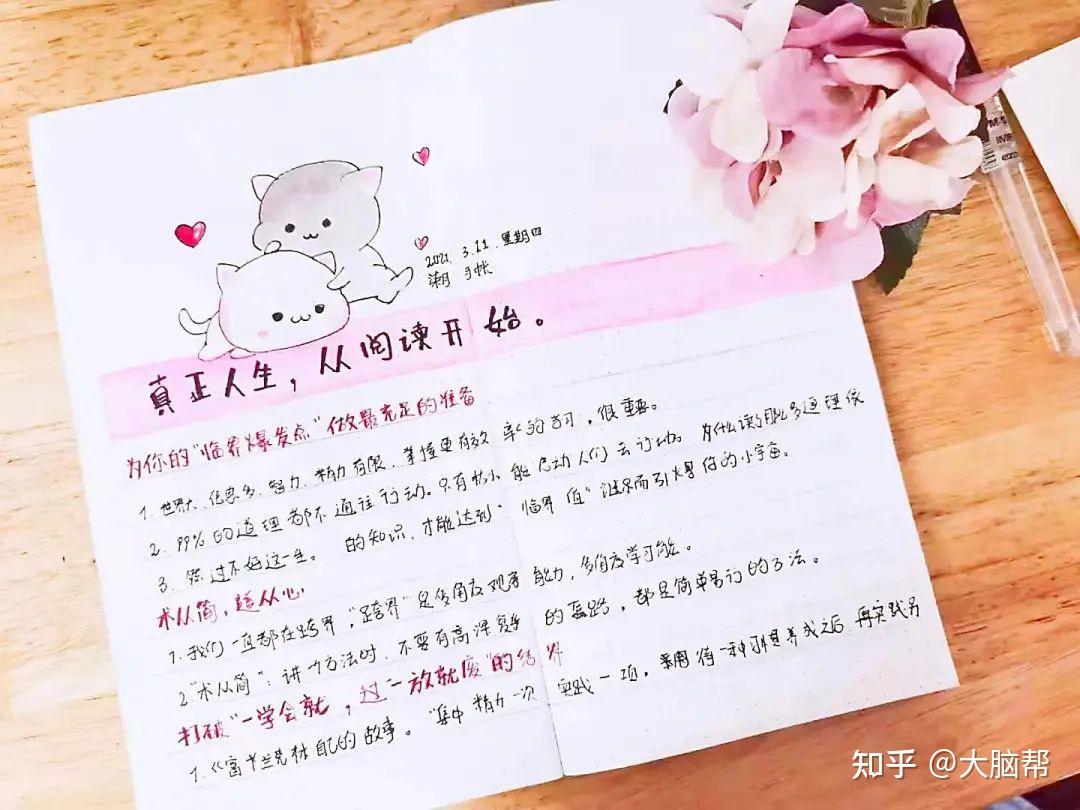 2021. 3. 11. 星期四
手帐
真正人生，从阅读开始。
为你的“临界爆发点”做最充足的准备
1. 世界大，信息多，智力、精力有限，掌握更有效率的学习，很重要。
2. 99%的道理都不通往行动。只有 能启动人们去行动。为什么读了那么多道理依
3. 然过不好这一生。 的知识，才能达到“临界值”继而引爆你的小宇宙。
术从简，道从心
1. 我们一直都在跨界，“跨界”是多角度观察能力，多角度学习能。
2 “术从简”：讲一个方法时，不要有高深复杂的套路，都是简单易行的方法。
打破“一学会就，过一放就废”的结界
1.《富兰克林自己的故事。“集中精力一次实践一项，等一种习惯养成之后，再实践另
知乎 @大脑帮